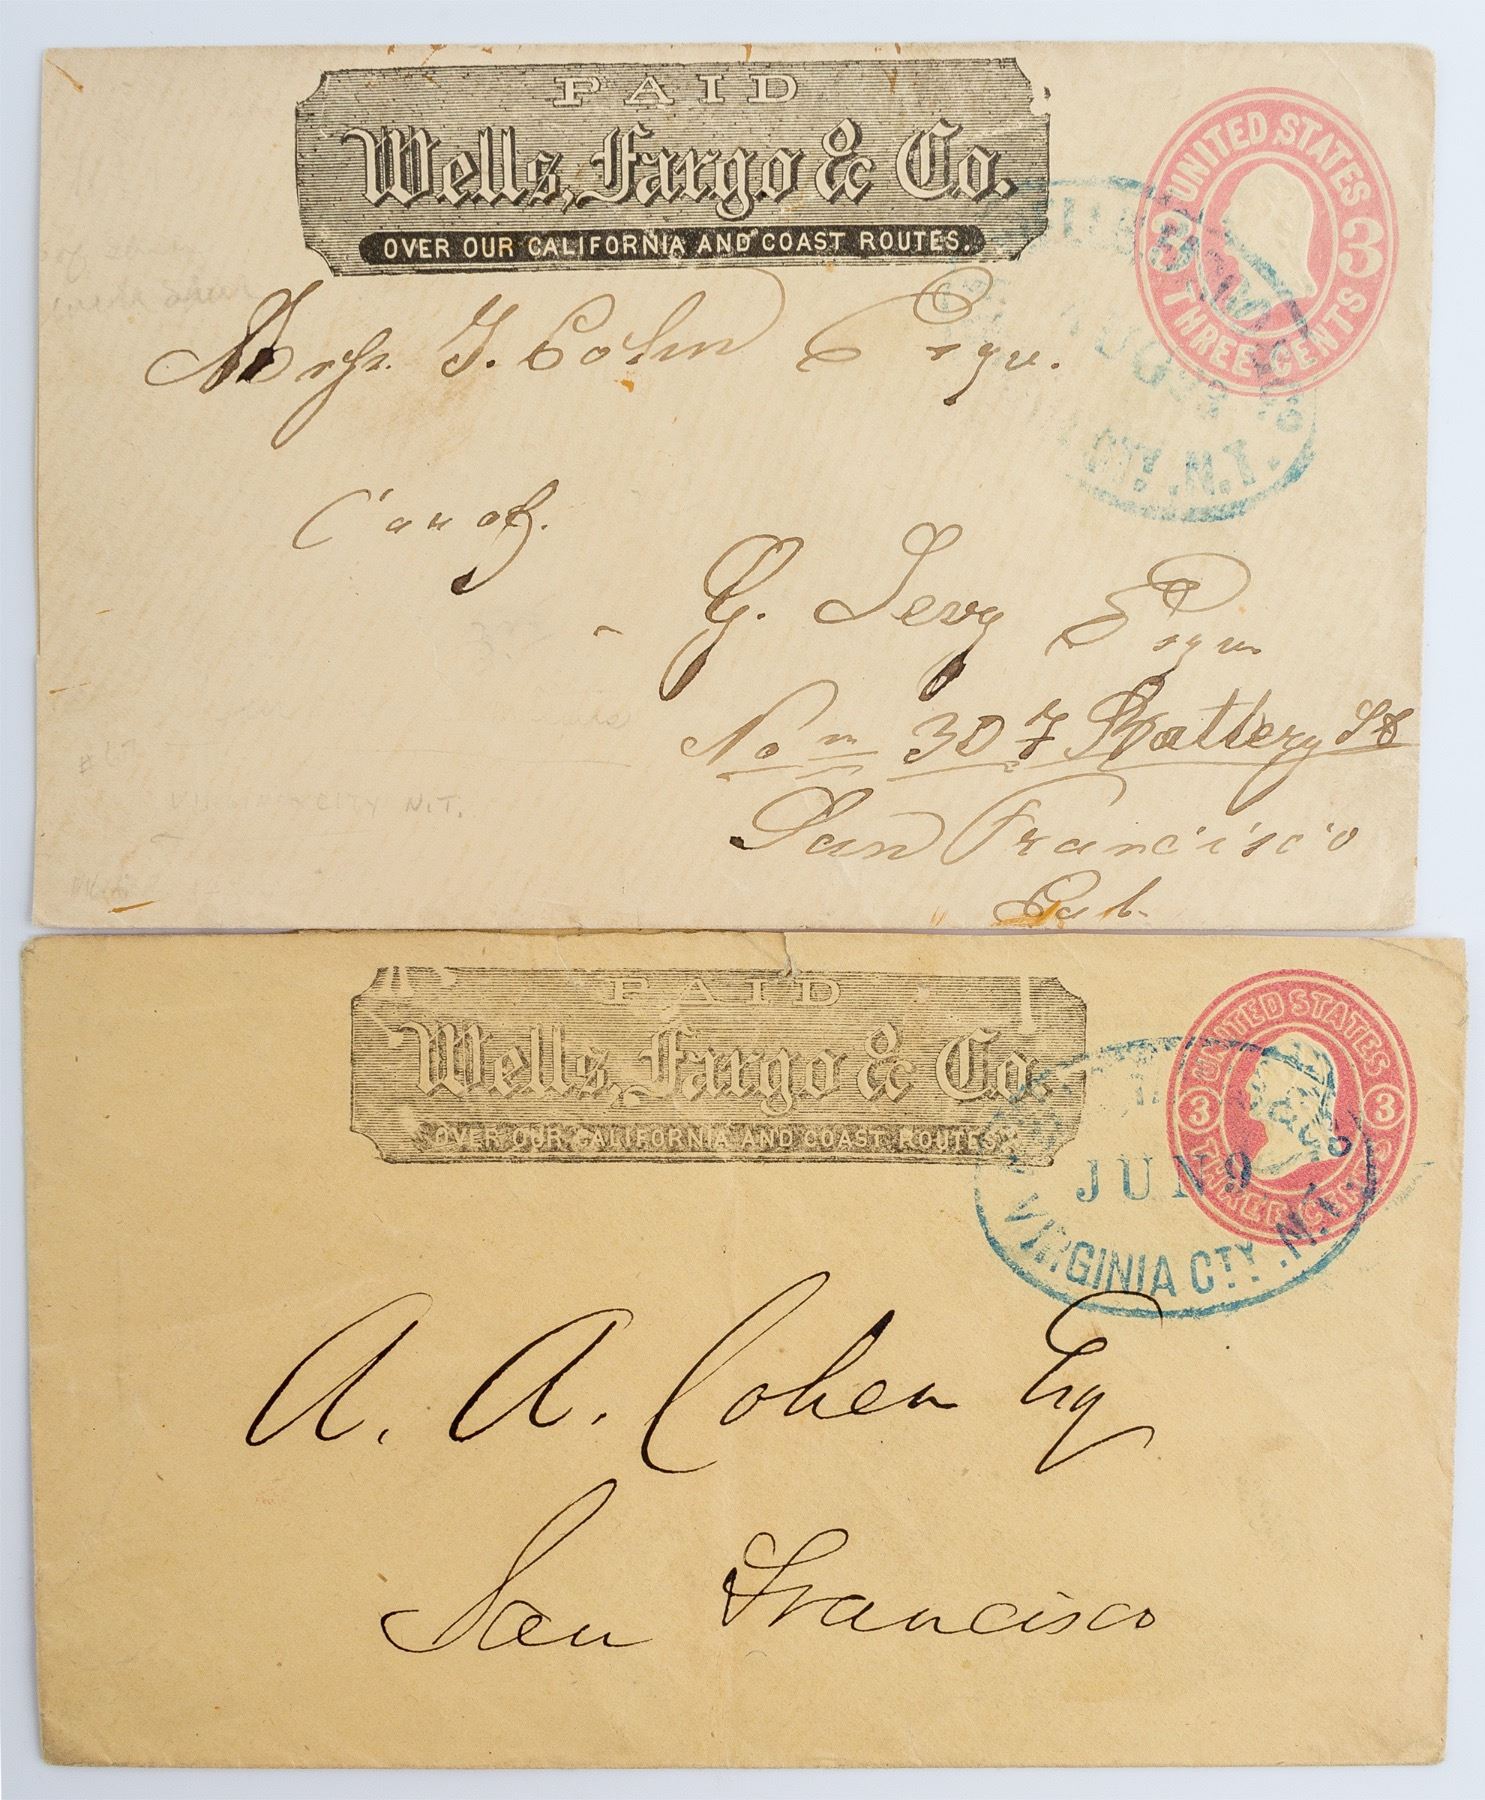 PAID
Wells, Fargo & Co.
OVER OUR CALIFORNIA AND COAST ROUTES.
UNITED STATES
3 3
THREE CENTS
AUG 22
CTY. N.T.
J. Cohn Esqr.
Care of.
G. Levy Esqr
No 307 Battery St
San Francisco
Cal.
#67
VIRGINIA CITY N.T.
PAID
Wells, Fargo & Co.
OVER OUR CALIFORNIA AND COAST ROUTES.
UNITED STATES
3 3
THREE CENTS
JUN 9
VIRGINIA CTY. N.T.
A. A. Cohen Esq
San Francisco